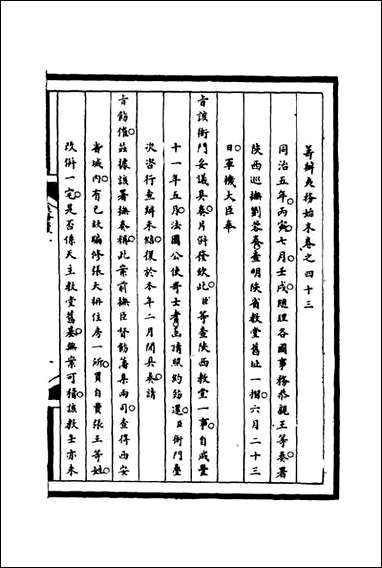 籌辦夷務始末卷之四十三
同治五年丙寅七月壬戌總理各國事務恭親王等奏署
陝西巡撫劉蓉奏查明陝省教堂舊址一摺六月二十三
日軍機大臣奉
旨該衙門妥議具奏片併發欽此臣等查陝西教堂一事自咸豐
十一年五月法國公使哥士耆函請照約給還臣衙門屢
次咨行查辦未結復於本年二月間具奏請
旨飭催茲據該署撫奏稱此案前撫臣督飭藩臬兩司查得西安
省城內有已缺騙修張大栟住房一所買自費張王等姓
改術一宅是否傳天主教堂舊基無案可稽該教士亦未